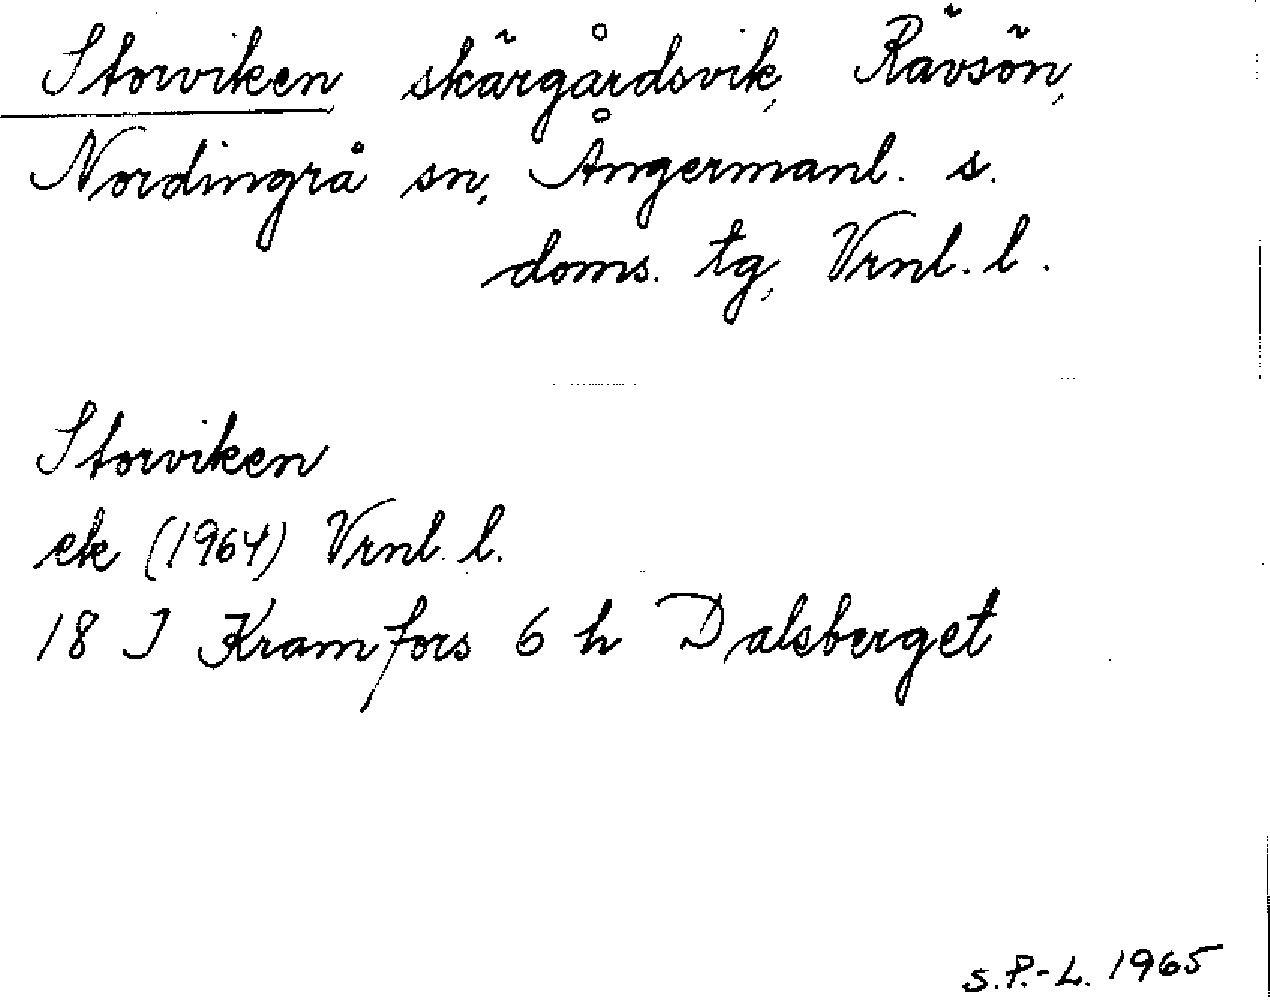 Storviken skärgårdsvik, Rävsön,
Nordingrå sn, Ångermanl. s.
doms. tg, Vrnl. l.
Storviken
ek (1964) Vrnl. l.
18 I Kramfors 6 h Dalsberget
S.P.-L. 1965